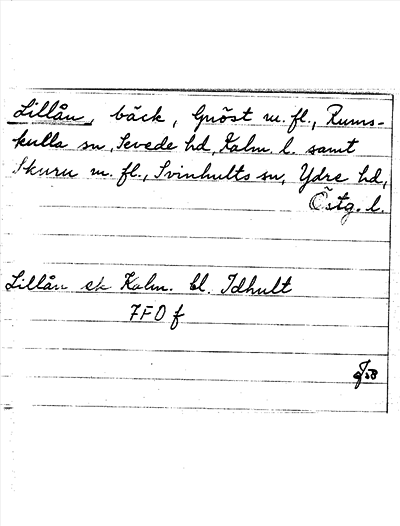 Lillån, bäck, Gnöst m. fl., Rums-
kulla sn, Sevede hd, Kalm. l. samt
Skuru m. fl., Svinhults sn, Ydre hd,
Östg. l.
Lillån ek Kalm. bl. Idhult
7FO f